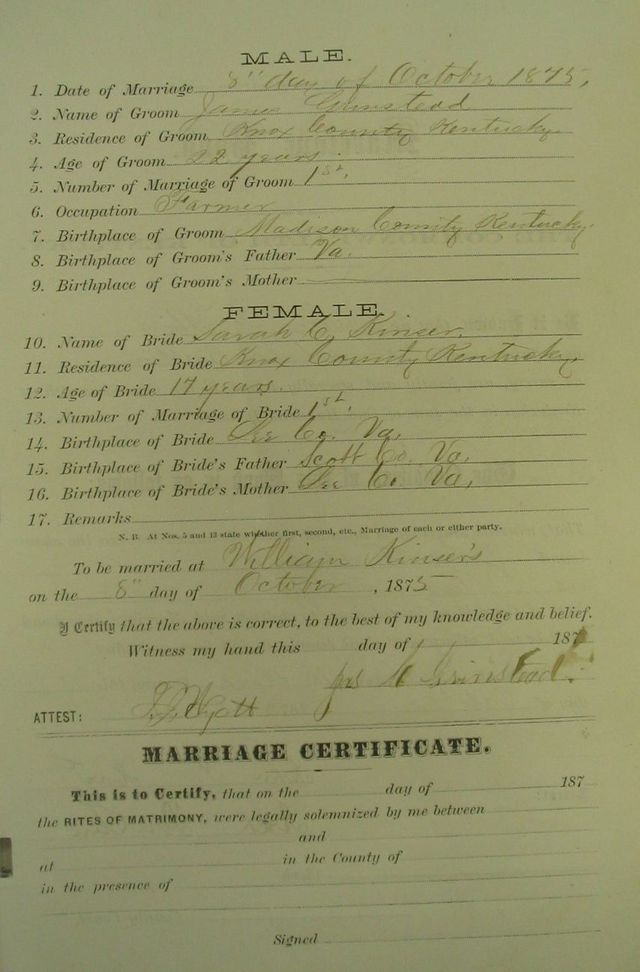 MALE.
1. Date of Marriage 8" day of October 1875,
2. Name of Groom James Grinstead
3. Residence of Groom Knox County Kentucky
4. Age of Groom 22 years
5. Number of Marriage of Groom 1st,
6. Occupation Farmer
7. Birthplace of Groom Madison County Kentucky
8. Birthplace of Groom's Father Va.
9. Birthplace of Groom's Mother
FEMALE.
10. Name of Bride Sarah C. Kinser
11. Residence of Bride Knox County Kentucky
12. Age of Bride 17 years.
13. Number of Marriage of Bride 1st.
14. Birthplace of Bride Lee Co. Va.
15. Birthplace of Bride's Father Scott Co. Va.
16. Birthplace of Bride's Mother Lee Co. Va,
17. Remarks
N. B. At Nos. 5 and 13 state whether first, second, etc., Marriage of each or either party.
To be married at William Kinser's
on the 8" day of October, 1875
I Certify that the above is correct, to the best of my knowledge and belief.
Witness my hand this day of 187
Grinstead
ATTEST:
MARRIAGE CERTIFICATE.
This is to Certify, that on the day of 187
the RITES OF MATRIMONY, were legally solemnized by me between
and
at in the County of
in the presence of
Signed